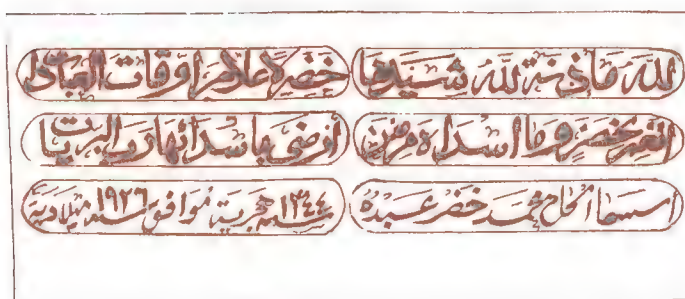 لله مأذنة لله شيدها خضر لإعلام اوقات العبادة
انعم بخضر وما اسداه من أرضى باسدائها رب البريا
أسسها الحاج محمد خضر عبده سنة ١٣٤٤ هجرية موافق سنة ١٩٢٦ ميلادية